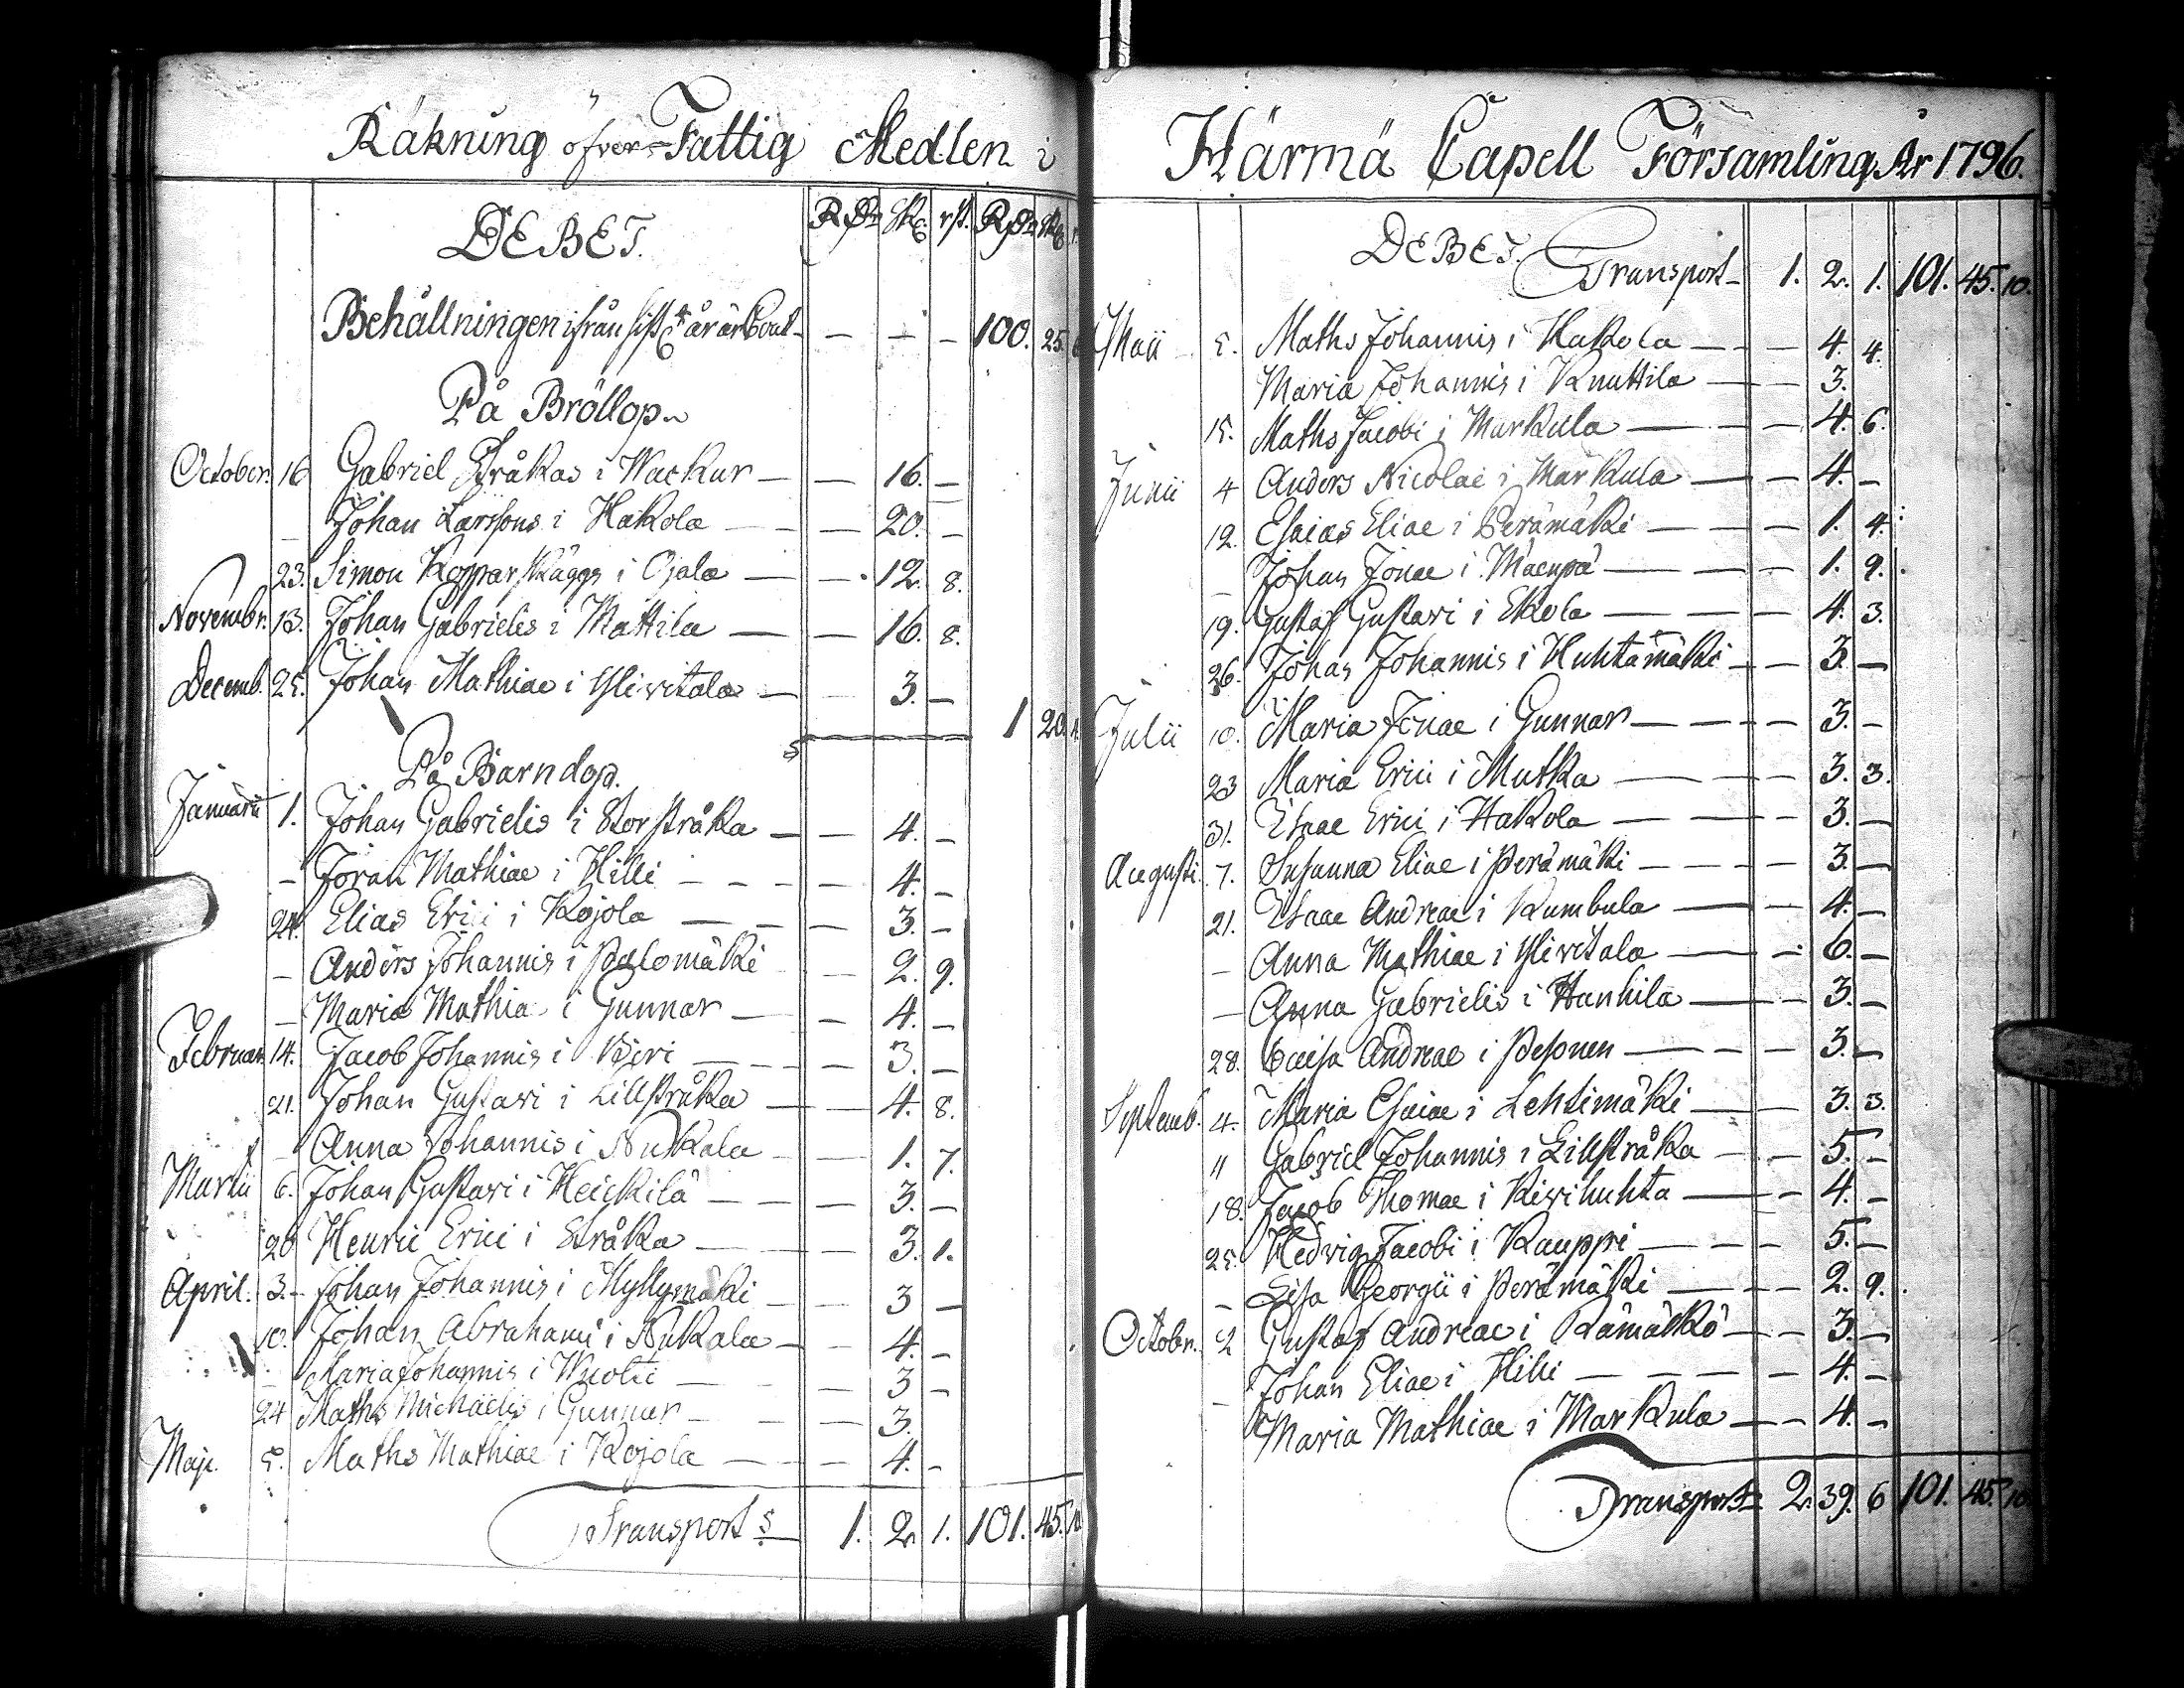 Räkning öfver Fattig Medlen i
DEBET. Rdr sk. rst. Rdr sk. r.
Behållningen ifrån sist år är Cont. — — — 100. 25.
På Bröllop
October. 16 Gabriel Stråkas i Wackur — — 16. —
— Johan Larssons i Hakola — — 20. —
23. Simon Kopparskäggs i Ojala — — 12. 8.
Novembr. 13. Johan Gabrielis i Mattila — — 16. 8.
Decemb. 25. Johan Mathiae i Yliwitala — — 3. —
1 20.
På Barndop.
Januarii 1. Johan Gabrielis i Storstråka — — 4. —
— Jöran Mathiae i Hilli — — 4. —
24. Elias Erici i Kojola — — 3. —
— Anders Johannis i Palomäki — 2. 9.
— Maria Mathia i Gunnar — — 4. —
Februar. 14. Jacob Johannis i Biri — — 3. —
21. Johan Gustavi i Lillstråka — — 4. 8.
— Anna Johannis i Nukala — — 1. 7.
Martii 6. Johan Gustavi i Heickilä — — 3. —
20 Henric Erici i Stråka — — 3. 1.
April. 3. Johan Johannis i Myllymäki — — 3 —
10. Johan Abrahami i Nukala — — 4. —
— Maria Johannis i Wuolii — — 3 —
24 Maths Michaelis i Gunnar — — 3.
Maji. 5. Maths Mathiae i Kojola — — 4. —
Transport 1. 2. 1. 101. 45. 10
Härmä Capell Församling År 1796.
DEBET.
Transport 1. 2. 1. 101. 45. 10.
Maii 5. Maths Johannis i Hakola — — 4. 4.
Maria Johannis i Knuttila — — 3.
15. Maths Jacobi i Markula — — 4. 6.
Junii 4 Anders Nicolai i Markula — — 4. —
12. Esaias Eliae i Perämäki — — 1. 4.
— Johan Jonae i Mäenpä — — 1. 9.
19. Gustaf Gustavi i Ekola — — 4. 3.
26. Johan Johannis i Huhtamäki — — 3. —
Julii 10. Maria Jonae i Gunnar — — 3. —
23 Maria Erici i Mutka — — 3. 3.
31. Isaac Erici i Hakola — — 3. —
Augusti. 7. Susanna Eliae i Perämäki — — 3. —
21. Isaac Andreae i Kumbula — — 4. —
— Anna Mathiae i Yliwitala — — 6. —
— Anna Gabrielis i Hanhila — — 3. —
28. Caisa Andreae i Pesonen — — 3. —
Septemb. 4. Maria Esaiae i Lehtimäki — — 3. 3.
11 Gabriel Johannis i Lillstråka — — 5. —
18. Jacob Thomae i Kiwihuhta — — 4. —
25. Hedvig Jacobi i Kauppi — — 5. —
— Lisa Georgii i Perämäki — — 2. 9.
Octobr. 2 Gustaf Andreae i Rämäkkö — — 3. —
— Johan Eliae i Hilli — — 4. —
Maria Mathiae i Markula — — 4. —
Transport 2. 39. 6 101. 45. 10